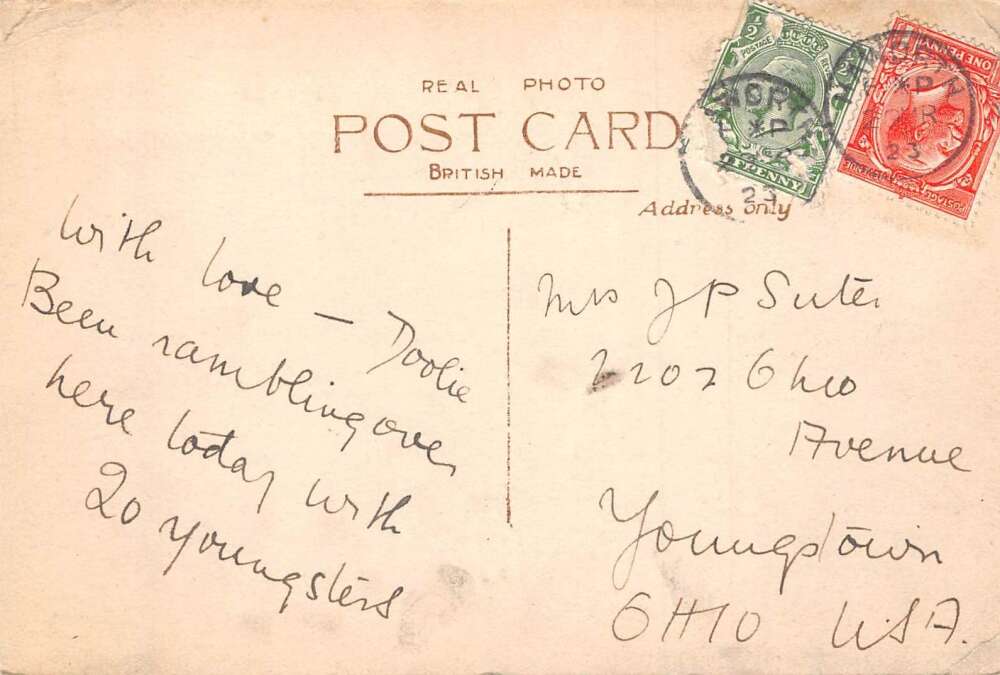 REAL PHOTO
POST CARD
BRITISH MADE
Address only
½ ½
POSTAGE
PENNY
ONE PENNY
POSTAGE
23
23
With love — Doolie
Been rambling over
here today with
20 youngsters
Mrs J P Suter
2207 Ohio
Avenue
Youngstown
OHIO USA.